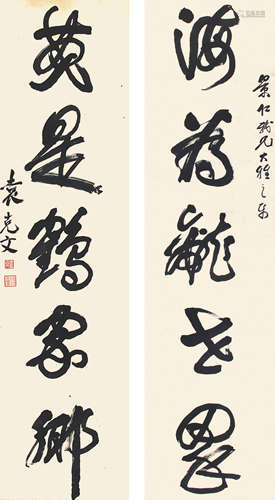 景仁兄大雅之
海為龍世界
是鶴家鄉
袁克文